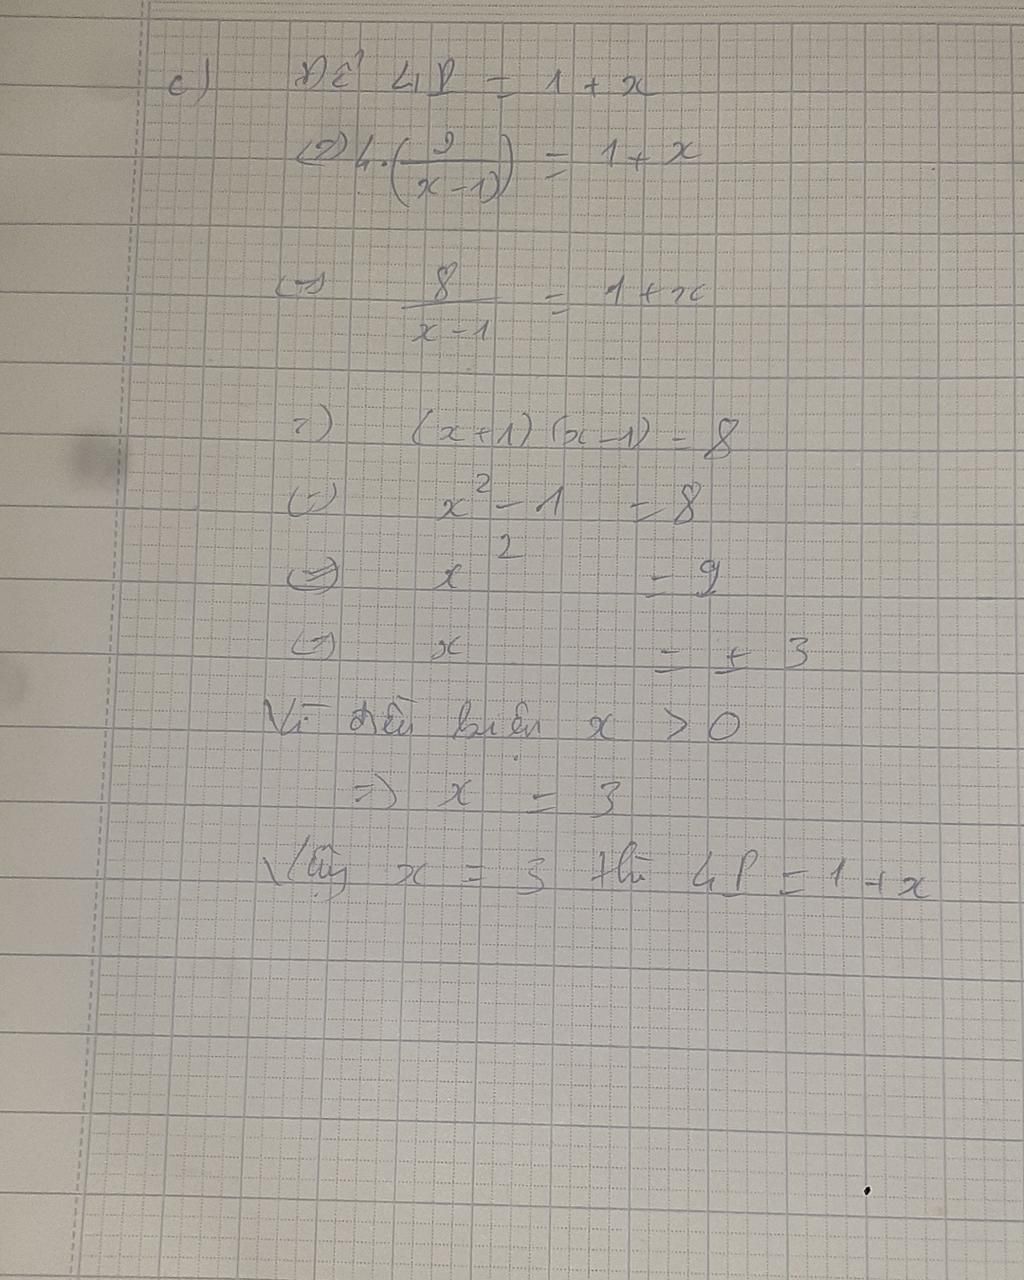 c) Để 4P = 1 + x
(=) 4.(2/(x-1)) = 1 + x
(=) 8/(x-1) = 1 + x
=) (x+1)(x-1) = 8
(=) x² - 1 = 8
(=) x² = 9
(=) x = ± 3
Vì điều kiện x > 0
=) x = 3
Vậy x = 3 thì 4P = 1 + x